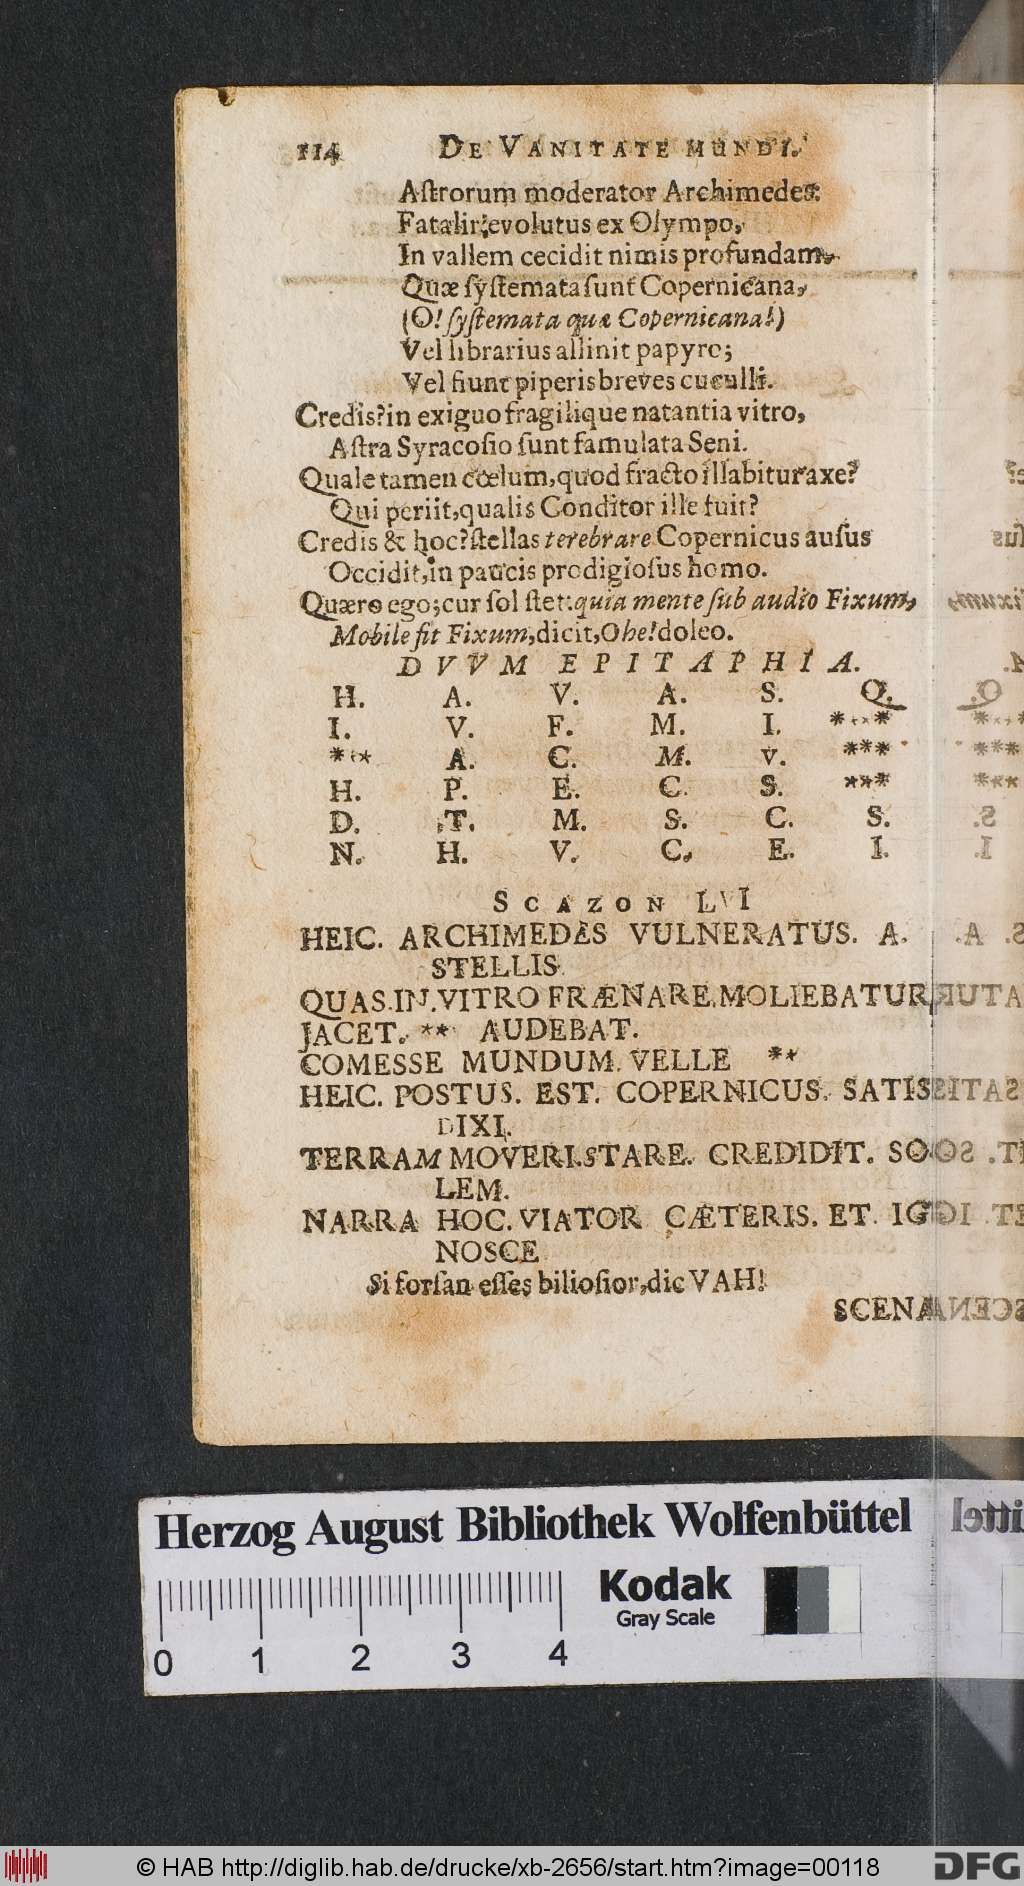 114 DE VANITATE MUNDI.
Aſtrorum moderator Archimedes:
Fatalir evolutus ex Olympo,
In vallem cecidit nimis profundam,
Quæ ſyſtemata ſunt Copernicana,
(O! ſyſtemata quæ Copernicana!)
Vel librarius allinit papyro;
Vel fiunt piperis breves cuculli.
Credis? in exiguo fragilique natantia vitro,
Aſtra Syracoſio ſunt famulata Seni.
Quale tamen cœlum, quod fracto illabitur axe?
Qui periit, qualis Conditor ille fuit?
Credis & hoc? ſtellas terebrare Copernicus auſus
Occidit, in paucis prodigioſus homo.
Quæro ego; cur ſol ſtet: quia mente ſub audio Fixum,
Mobile fit Fixum, dicit, Ohe! doleo.
DVVM EPITAPHIA.
H. A. V. A. S. Q.
I. V. F. M. I. ***
*** A. C. M. V. ***
H. P. E. C. S. ***
D. T. M. S. C. S.
N. H. V. C. E. I.
SCAZON LVI
HEIC. ARCHIMEDES VULNERATUS. A.
STELLIS.
QUAS. IN. VITRO FRÆNARE. MOLIEBATUR
JACET. ** AUDEBAT.
COMESSE MUNDUM. VELLE **
HEIC. POSTUS. EST. COPERNICUS. SATIS
DIXI.
TERRAM MOVERI. STARE. CREDIDIT. SO
LEM.
NARRA HOC. VIATOR CÆTERIS. ET IG
NOSCE
Si forſan eſſes bilioſior, dic VAH!
SCENA
Herzog August Bibliothek Wolfenbüttel
Kodak
Gray Scale
0 1 2 3 4
© HAB http://diglib.hab.de/drucke/xb-2656/start.htm?image=00118
DFG